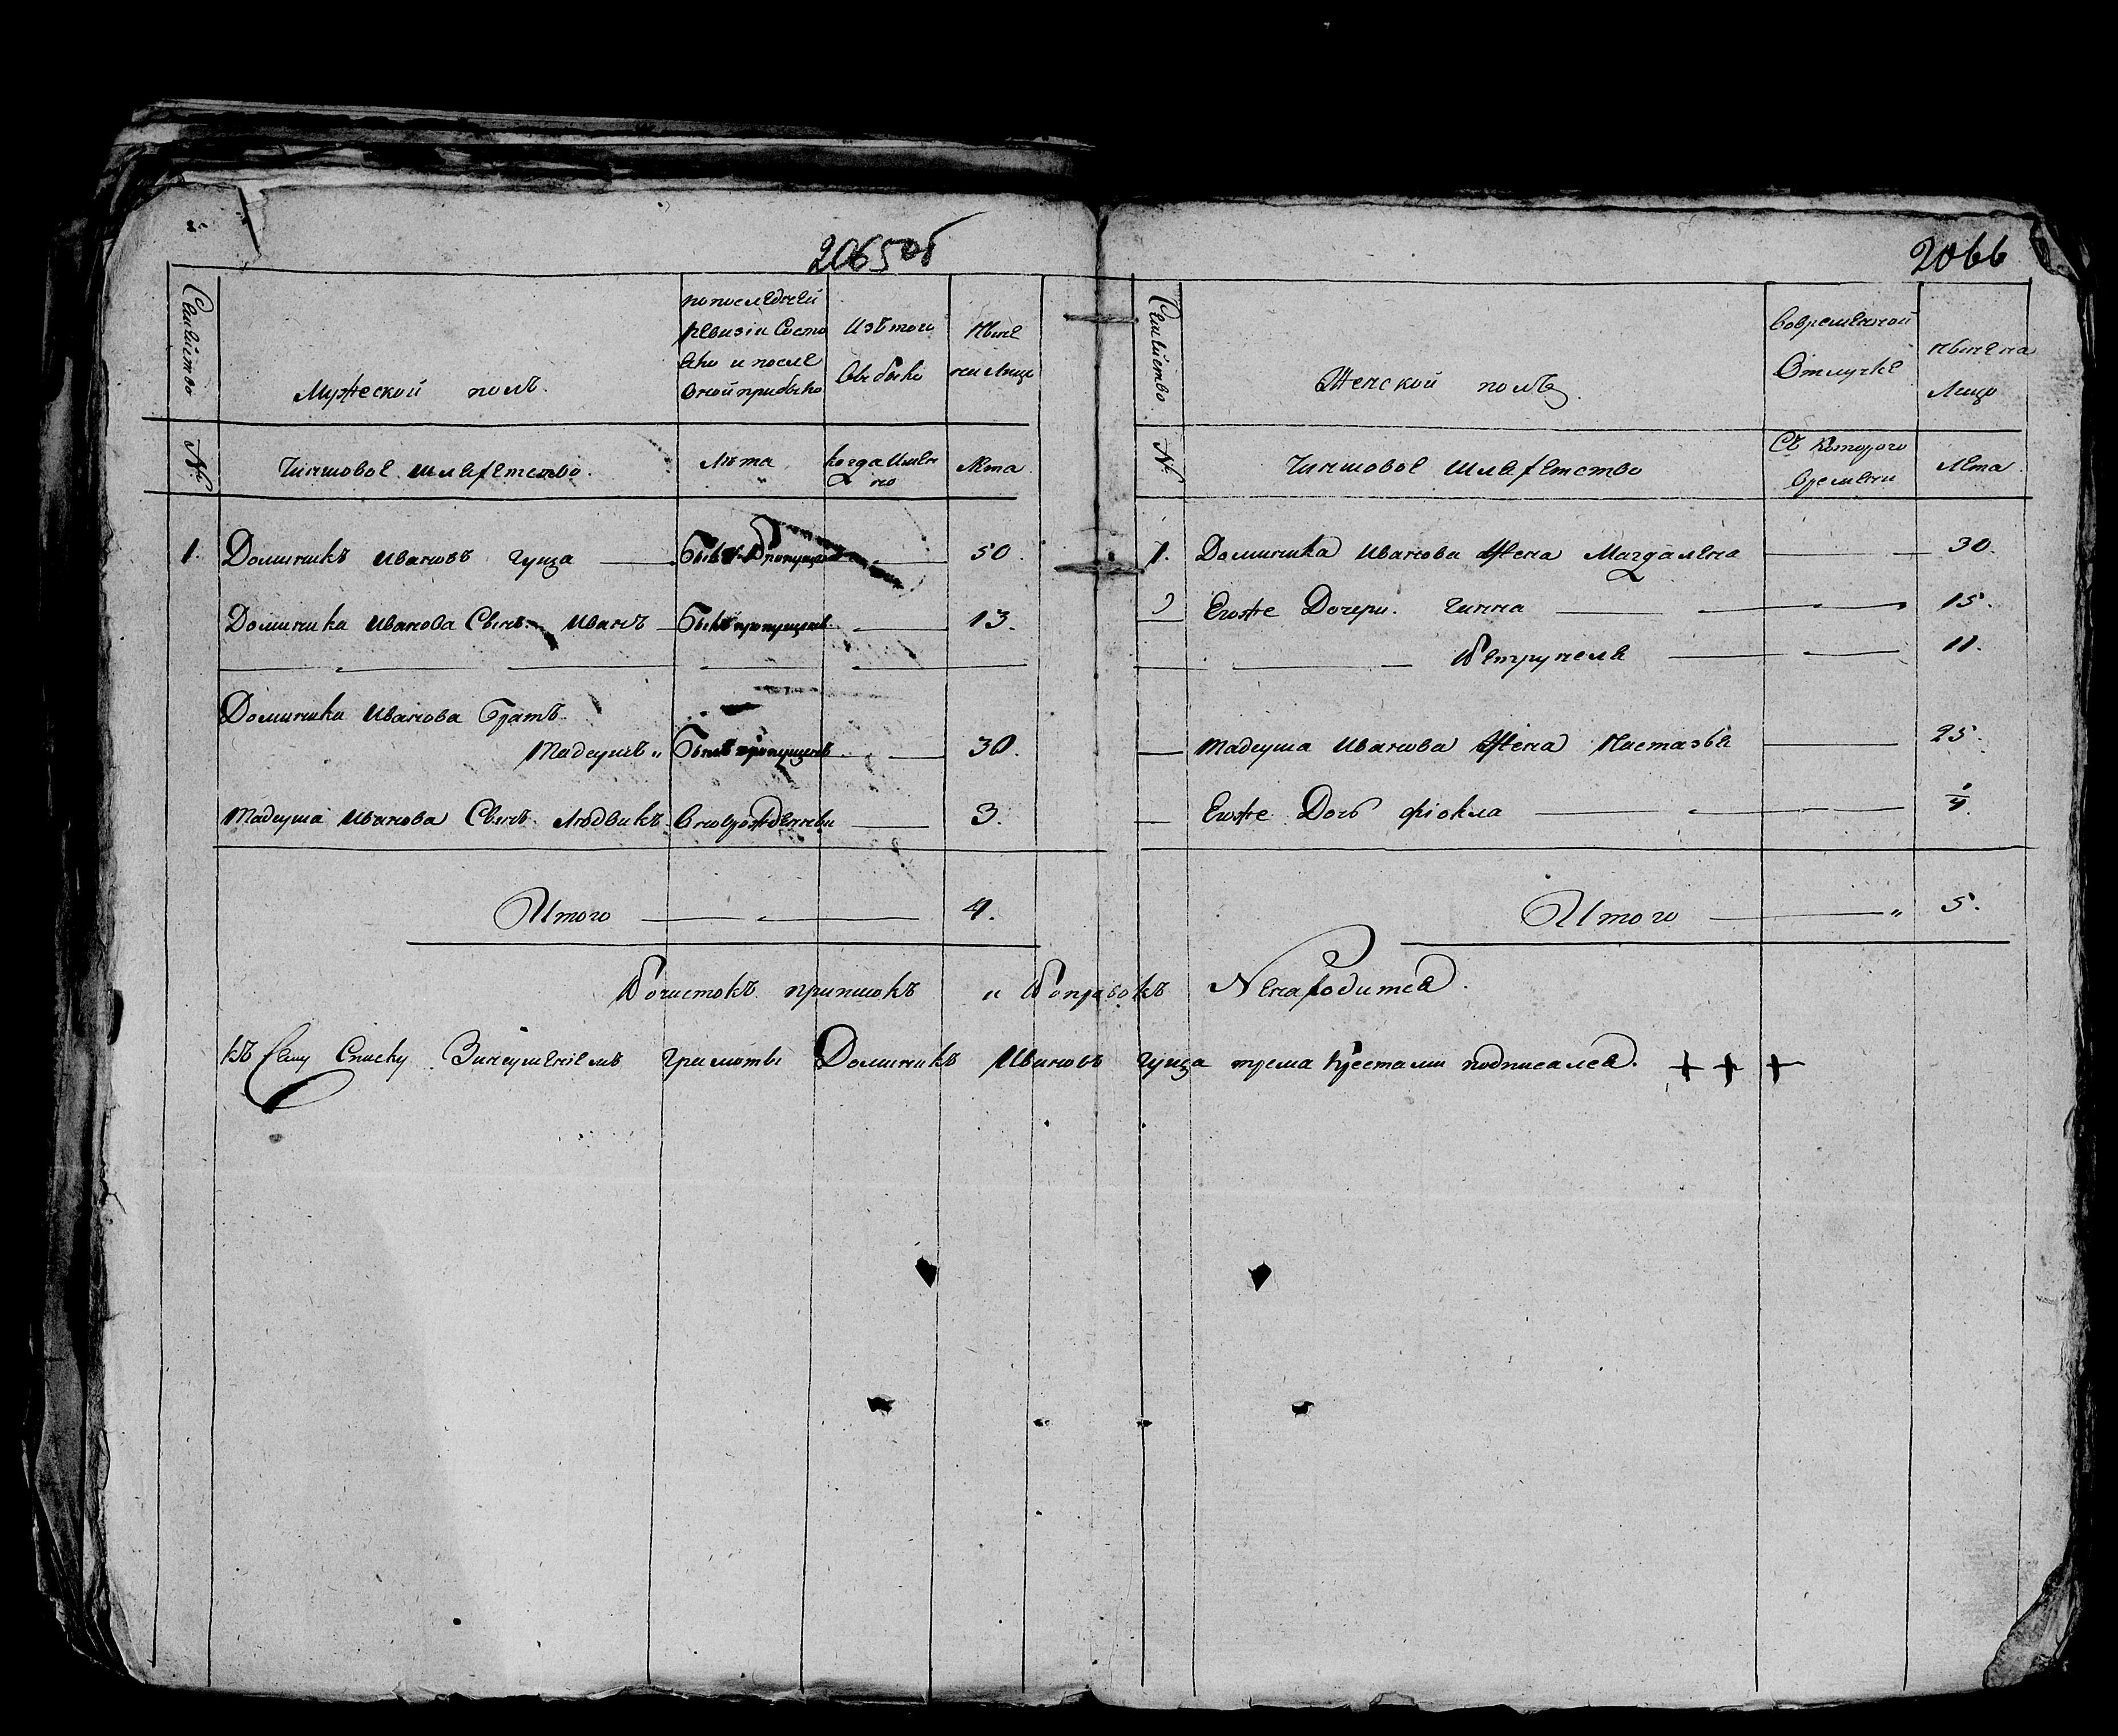 2065об
2066
Семейство
Мужеской полъ.
по последней
ревизіи Состо
яло и после
оной прибыло
Изъ того
выбыло
Ныне
на Лицо
№
Чиншовое шляхетство.
Лѣта
когда имен
но
Лета
1. Доминикъ Ивановъ Гуща Былъ пропущенъ 50.
Доминика Иванова Сынъ Иванъ Былъ пропущенъ 13.
Доминика Иванова Братъ
Тадеушъ „ Былъ пропущенъ 30.
Тадеуша Иванова Сынъ Людвикъ вноврожденны 3.
Итого 4.
Семейство
Женской полъ.
во временной
Отлучке
ныне на
Лицо
№
Чиншовое шляхетство
Съ которого
времени
Лета
1. Доминика Иванова жена Магдалена 30.
2 Егоже Дочери. Анна 15.
Петрунеля 11.
Тадеуша Иванова жена Настазья 25.
Егоже Дочь Фіокла 1/4.
Итого „ 5.
Почистокъ припискъ „ Поправокъ Ненаходится.
къ сему Списку Занеумениемъ грамоты Доминикъ Ивановъ Гуща трема крестами подписался. + + +